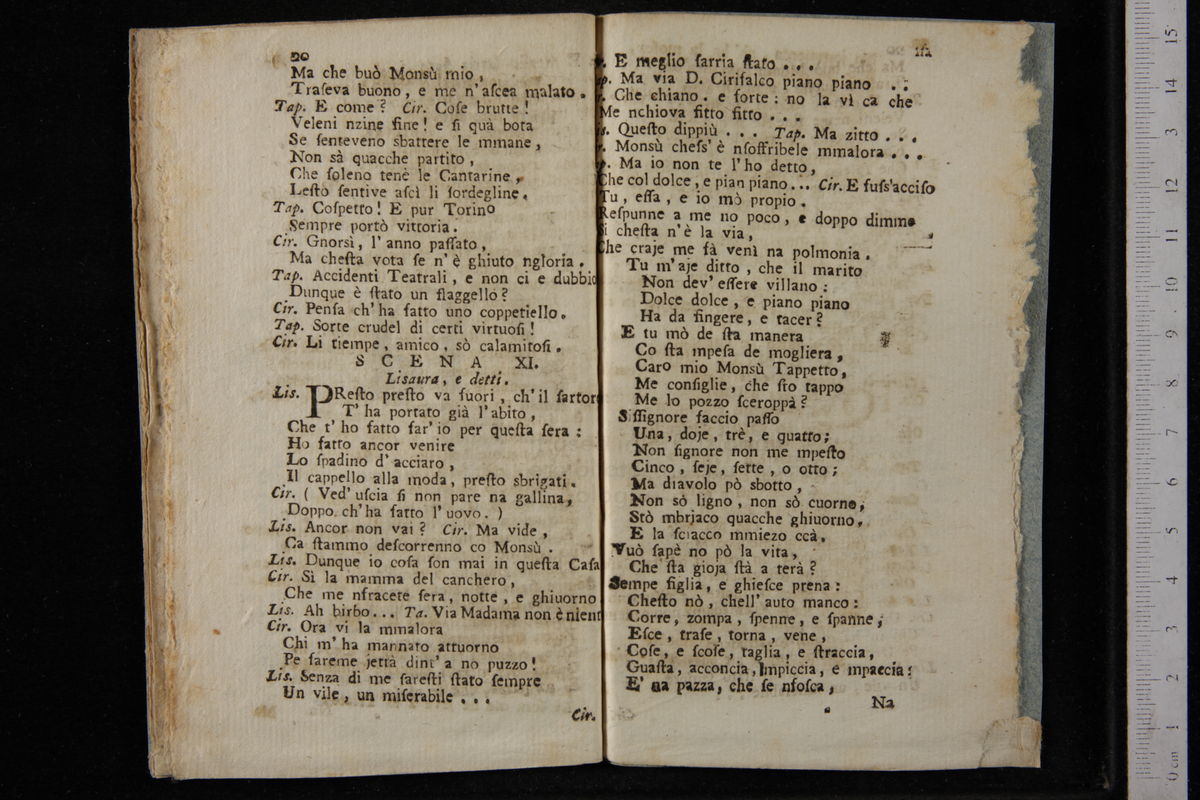 20
Ma che buò Monsù mio,
Traſeva buono, e me n'aſcea malato.
Tap. E come? Cir. Coſe brutte!
Veleni nzine fine! e ſi quà bota
Se ſenteveno sbattere le mmane,
Non sà quacche partito,
Che ſoleno tenè le Cantarine,
Leſtò ſentive aſcì li ſordegline.
Tap. Coſpetto! E pur Torino
Sempre portò vittoria.
Cir. Gnorsì, l'anno paſſato,
Ma cheſta vota ſe n'è ghiuto ngloria.
Tap. Accidenti Teatrali, e non ci e dubbio
Dunque è ſtato un flaggello?
Cir. Penſa ch'ha fatto uno coppetiello.
Tap. Sorte crudel di certi virtuoſi!
Cir. Li tiempe, amico, sò calamitoſi.
SCENA XI.
Lisaura, e detti.
Lis. PReſto preſto va fuori, ch'il ſartor
T'ha portato già l'abito,
Che t'ho fatto far'io per queſta ſera:
Ho fatto ancor venire
Lo ſpadino d'acciaro,
Il cappello alla moda, preſto sbrigati.
Cir. (Ved'uſcia ſi non pare na gallina,
Doppo ch'ha fatto l'uovo.)
Lis. Ancor non vai? Cir. Ma vide,
Ca ſtammo deſcorrenno co Monsù.
Lis. Dunque io coſa ſon mai in queſta Caſa
Cir. Sì la mamma del canchero,
Che me nfracete ſera, notte, e ghiuorno
Lis. Ah birbo... Ta. Via Madama non è nient
Cir. Ora vi la mmalora
Chi m'ha mannato attuorno
Pe fareme jettà dint'a no puzzo!
Lis. Senza di me fareſti ſtato ſempre
Un vile, un miſerabile...
Cir.
E meglio ſarria ſtato...
p. Ma via D. Cirifalco piano piano..
Che chiano. e forte: no la vì ca che
Me nchiova fitto fitto...
s. Queſto dippiù... Tap. Ma zitto...
Monsù cheſs'è nſoffribele mmalora...
p. Ma io non te l'ho detto,
Che col dolce, e pian piano... Cir. E fuſs'acciſo
Tu, eſſa, e io mò propio.
Reſpunne a me no poco, e doppo dimme
Si cheſta n'è la via,
Che craje me fà venì na polmonia.
Tu m'aje ditto, che il marito
Non dev'eſſere villano:
Dolce dolce, e piano piano
Ha da fingere, e tacer?
E tu mò de ſta manera
Co ſta mpeſa de mogliera,
Caro mio Monsù Tappetto,
Me conſiglie, che ſto tappo
Me lo pozzo ſceroppà?
Siſſignore faccio paſſo
Una, doje, trè, e quatto;
Non ſignore non me mpeſto
Cinco, ſeje, ſette, o otto;
Ma diavolo pò sbotto,
Non sò ligno, non sò cuorno;
Stò mbrjaco quacche ghiuorno,
E la ſciacco mmiezo ccà.
Vuò ſapè no pò la vita,
Che ſta gioja ſtà a terà?
Sempe figlia, e ghieſce prena:
Cheſto nò, chell'auto manco:
Corre, zompa, ſpenne, e ſpanne,
Eſce, traſe, torna, vene,
Coſe, e ſcoſe, taglia, e ſtraccia,
Guaſta, acconcia, mpiccia, e mpaccia:
E' na pazza, che ſe nfoſca,
Na